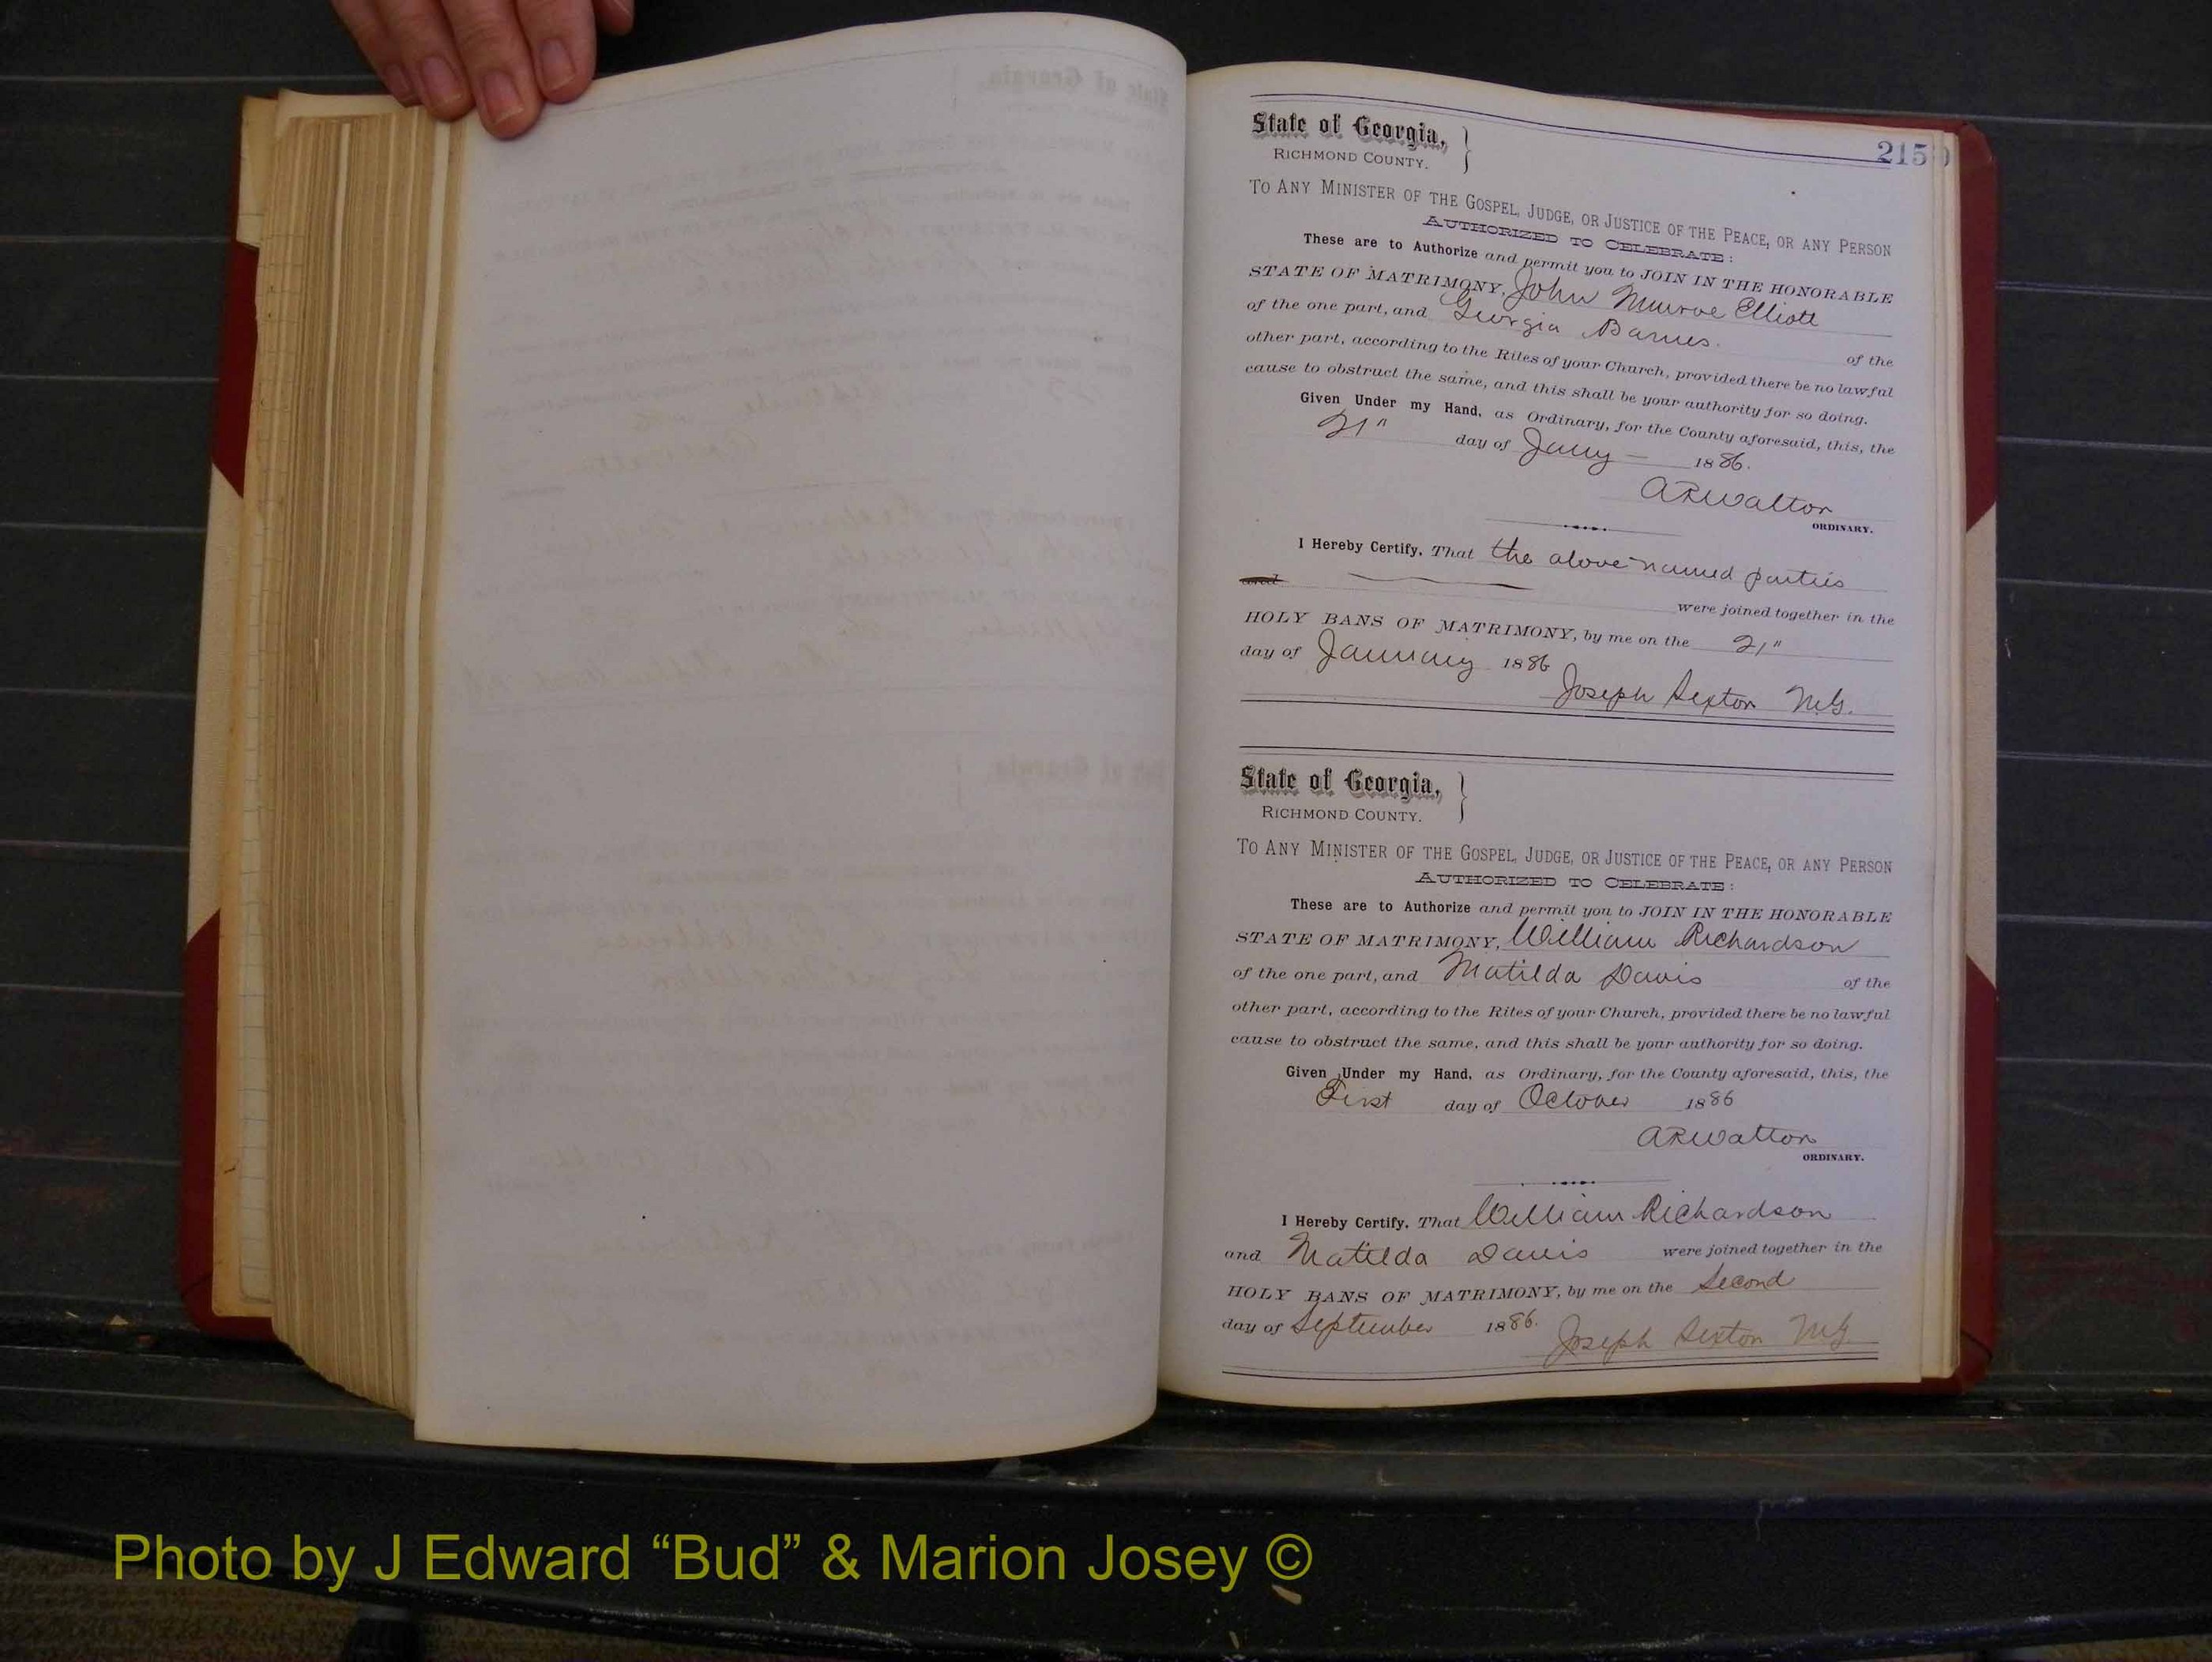 215
State of Georgia, }
RICHMOND COUNTY.
TO ANY MINISTER OF THE GOSPEL, JUDGE, OR JUSTICE OF THE PEACE, OR ANY PERSON
AUTHORIZED TO CELEBRATE:
These are to Authorize and permit you to JOIN IN THE HONORABLE
STATE OF MATRIMONY, John Munroe Elliott
of the one part, and Georgia Barnes. of the
other part, according to the Rites of your Church, provided there be no lawful
cause to obstruct the same, and this shall be your authority for so doing.
Given Under my Hand, as Ordinary, for the County aforesaid, this, the
21" day of Jany - 1886.
ARWalton
ORDINARY.
I Hereby Certify, That the above named parties
were joined together in the
HOLY BANS OF MATRIMONY, by me on the 21"
day of January 1886
Joseph Sexton M.G.
State of Georgia, }
RICHMOND COUNTY.
TO ANY MINISTER OF THE GOSPEL, JUDGE, OR JUSTICE OF THE PEACE, OR ANY PERSON
AUTHORIZED TO CELEBRATE:
These are to Authorize and permit you to JOIN IN THE HONORABLE
STATE OF MATRIMONY, William Richardson
of the one part, and Matilda Davis of the
other part, according to the Rites of your Church, provided there be no lawful
cause to obstruct the same, and this shall be your authority for so doing.
Given Under my Hand, as Ordinary, for the County aforesaid, this, the
First day of October 1886
ARWalton
ORDINARY.
I Hereby Certify, That William Richardson
and Matilda Davis were joined together in the
HOLY BANS OF MATRIMONY, by me on the Second
day of September 1886.
Joseph Sexton M.G.
Photo by J Edward “Bud” & Marion Josey ©